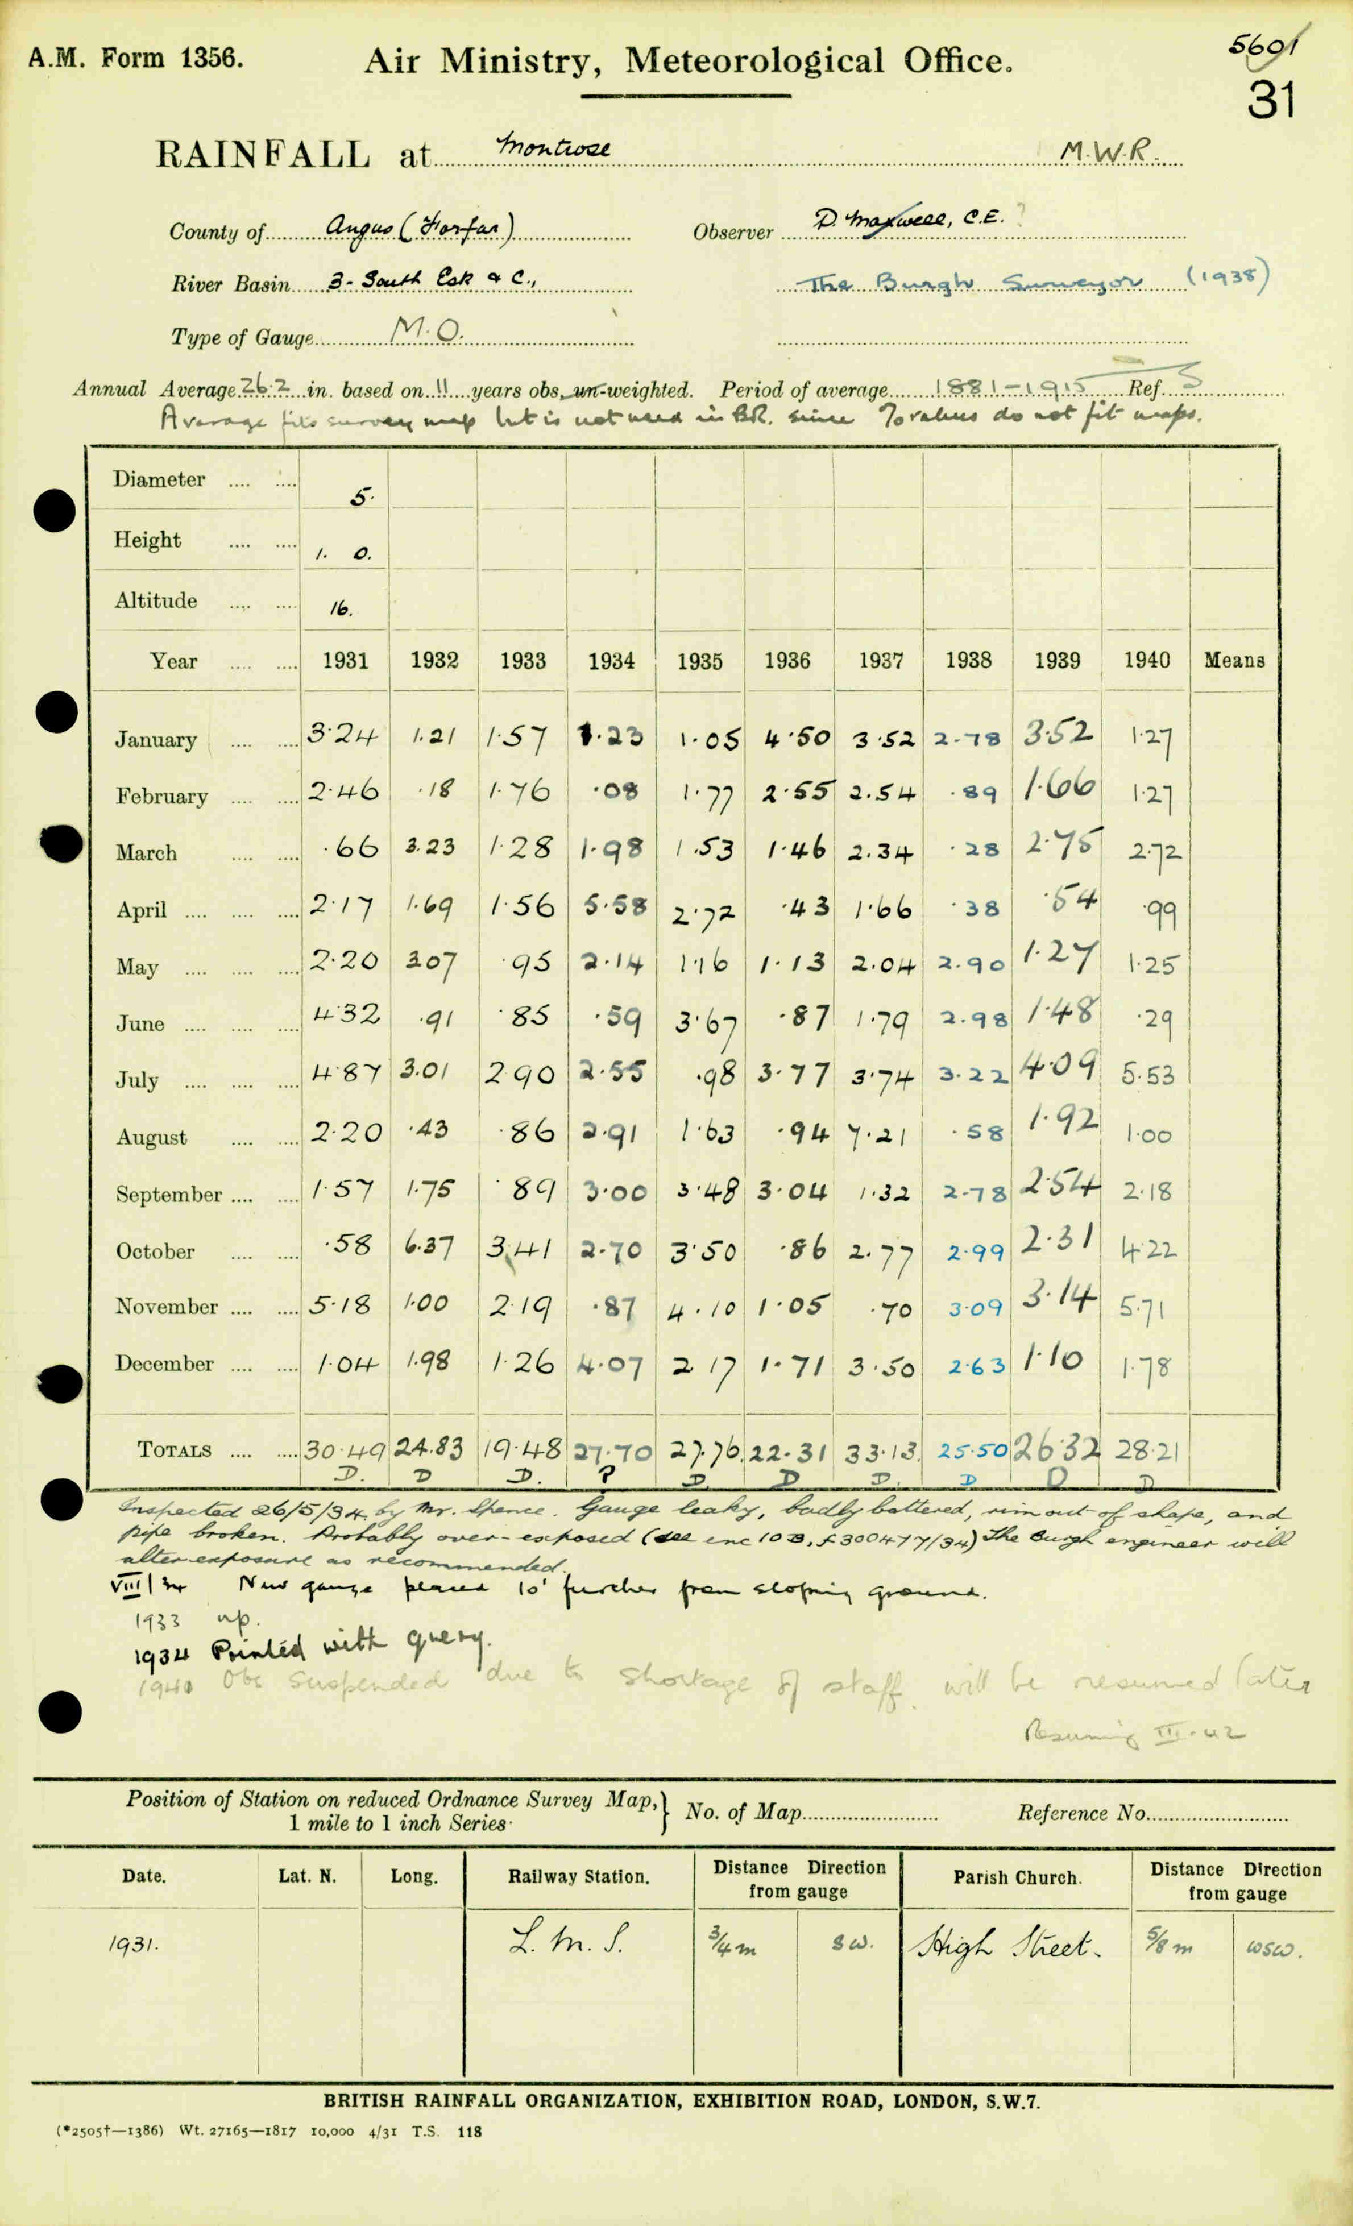 A.M. Form 1356. Air Ministry, Meteorological Office. 5601
31
RAINFALL at Montrose M.W.R.
County of Angus (Forfar) Observer D. Maxwell, C.E. ?
River Basin 3 - South Esk & C., The Burgh Surveyor (1938)
Type of Gauge M.O.
Annual Average 26.2 in. based on 11 years obs. un-weighted. Period of average 1881-1915 Ref. S
Average fits survey map but is not used in B.R. since % values do not fit maps.
Diameter .... .... 5.
Height .... .... 1. 0.
Altitude .... .... 16.
Year .... .... 1931 1932 1933 1934 1935 1936 1937 1938 1939 1940 Means
January .... .... 3.24 1.21 1.57 1.23 1.05 4.50 3.52 2.78 3.52 1.27
February .... .... 2.46 .18 1.76 .08 1.77 2.55 2.54 .89 1.66 1.27
March .... .... .66 3.23 1.28 1.98 1.53 1.46 2.34 .28 2.75 2.72
April .... .... .... 2.17 1.69 1.56 5.58 2.72 .43 1.66 .38 .54 .99
May .... .... .... 2.20 3.07 .95 2.14 1.16 1.13 2.04 2.90 1.27 1.25
June .... .... .... 4.32 .91 .85 .59 3.67 .87 1.79 2.98 1.48 .29
July .... .... .... 4.87 3.01 2.90 2.55 .98 3.77 3.74 3.22 4.09 5.53
August .... .... 2.20 .43 .86 2.91 1.63 .94 7.21 .58 1.92 1.00
September .... .... 1.57 1.75 .89 3.00 3.48 3.04 1.32 2.78 2.54 2.18
October .... .... .58 6.37 3.41 2.70 3.50 .86 2.77 2.99 2.31 4.22
November .... .... 5.18 1.00 2.19 .87 4.10 1.05 .70 3.09 3.14 5.71
December .... .... 1.04 1.98 1.26 4.07 2.17 1.71 3.50 2.63 1.10 1.78
TOTALS .... .... 30.49 24.83 19.48 27.70 27.76 22.31 33.13 25.50 26.32 28.21
D. D D. ? D D D. D D D
Inspected 26/5/34 by Mr. Spence. Gauge leaky, badly battered, rim out of shape, and
pipe broken. Probably over-exposed (see enc 10B, F300477/34) The Burgh engineer will
alter exposure as recommended.
VIII/34 New gauge placed 10' further from sloping ground.
1933 up.
1934 Printed with query.
1940 Obs suspended due to shortage of staff. will be resumed later
Resuming III.42
Position of Station on reduced Ordnance Survey Map, } No. of Map Reference No.
1 mile to 1 inch Series
Date. Lat. N. Long. Railway Station. Distance Direction from gauge Parish Church. Distance Direction from gauge
1931. L. M. S. 3/4 m SW. High Street. 5/8 m WSW.
BRITISH RAINFALL ORGANIZATION, EXHIBITION ROAD, LONDON, S.W.7.
(*2505†—1386) Wt. 27165—1817 10,000 4/31 T.S. 118